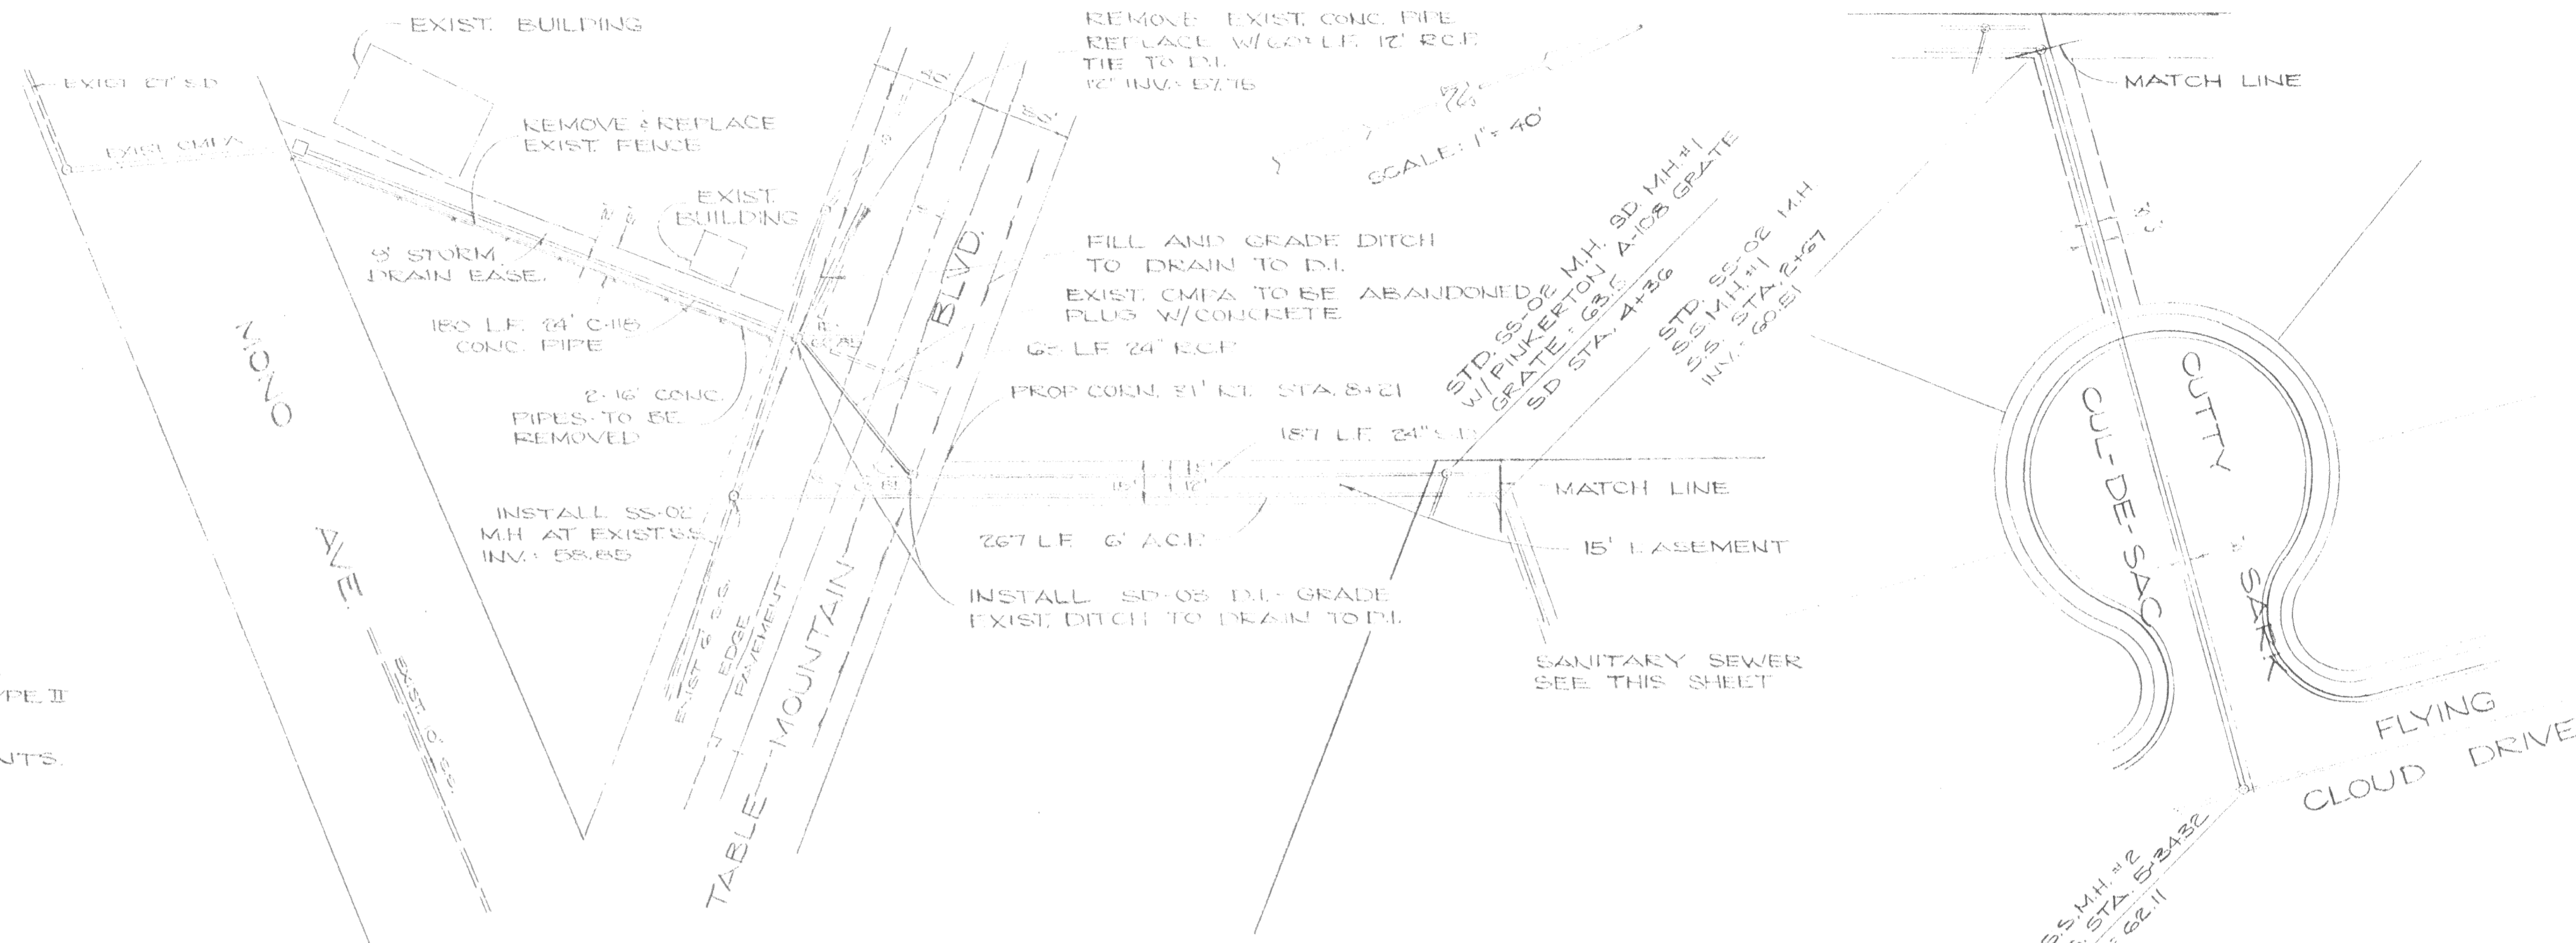 EXIST. BUILDING
EXIST 27" S.D.
EXIST. CMPA
REMOVE & REPLACE
EXIST. FENCE
EXIST.
BUILDING
9' STORM
DRAIN EASE.
180 L.F. 24" C-118
CONC. PIPE
2-16" CONC.
PIPES-TO BE
REMOVED
INSTALL SS-02
M.H AT EXIST. S.S.
INV.: 58.85
MONO
AVE.
EXIST. 10" S.S.
EXIST 6" S.S.
EDGE
PAVEMENT
TABLE MOUNTAIN
BLVD.
REMOVE EXIST. CONC. PIPE
REPLACE W/60± L.F. 12" R.C.P.
TIE TO D.I.
12" INV.: 57.75
SCALE: 1" = 40'
FILL AND GRADE DITCH
TO DRAIN TO D.I.
EXIST. CMPA TO BE ABANDONED
PLUG W/CONCRETE
L.F. 24" R.C.P.
PROP. CORN. 31' RT. STA. 8+21
187 L.F. 24" S.D.
267 L.F. 6" A.C.P.
INSTALL SD-03 D.I.- GRADE
EXIST. DITCH TO DRAIN TO D.I.
STD. SS-02 M.H. SD. M.H. #1
W/ PINKERTON A-108 GRATE
GRATE = 63.5
SD STA. 4+36
STD. SS-02 M.H
S.S. M.H. #1
S.S. STA. 2+67
INV. = 60.51
MATCH LINE
15' EASEMENT
SANITARY SEWER
SEE THIS SHEET
MATCH LINE
CUL-DE-SAC
CUTTY
SARK
FLYING
CLOUD DRIVE
S.S. M.H. #2
STA. 5+34.32
= 62.11
YPE II
NTS.